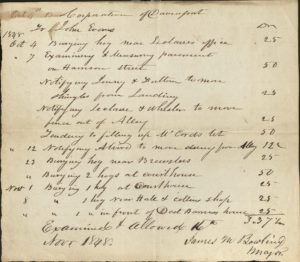 Corporation of Davenport
To John Evans Dr
1848
Oct 4 Burying hog near Leclaires office 25
" 7 Examining & Measuring pavement
on Harrison street 50
Notifying Jenny & to move
shingles from Landing 25
Notifying Leclaire & Whelen to move
fence out of Alley 25
Tending to filling up McCords lot 50
" 12 Notifying to move from Alley 12½
23 Burying hog near 25
" Burying 2 hogs at courthouse 50
Nov 1 Burying 1 hog at Courthouse 25
8 " 1 hog near Hall & collins shop 25
" " 1 " in front of Doct Barrows house 25
$3.37½
Examined & Allowed
Novr 1848
James M Bowling
Mayor